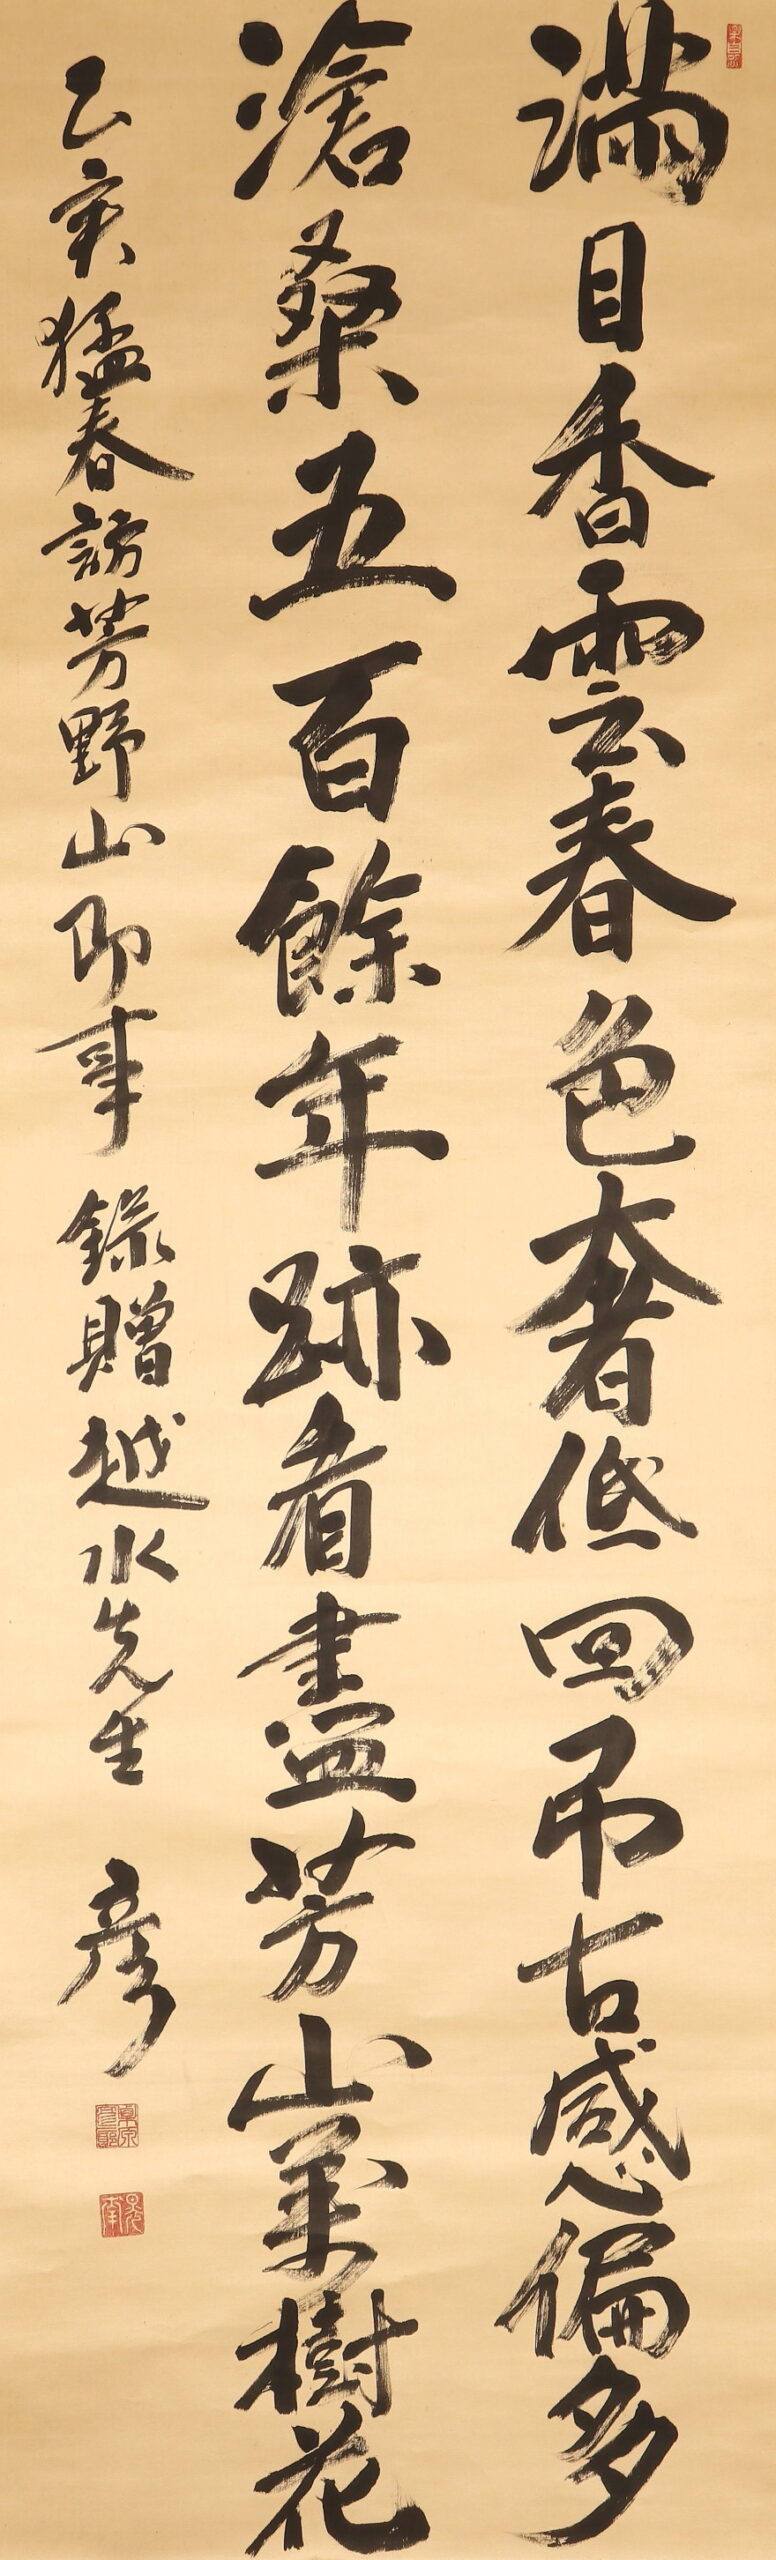 満目香雲春色奢低回弔古感偏多
滄桑五百餘年跡看盡芳山萬樹花
乙亥猛春訪芳野山即事 錄贈越水先生 彦